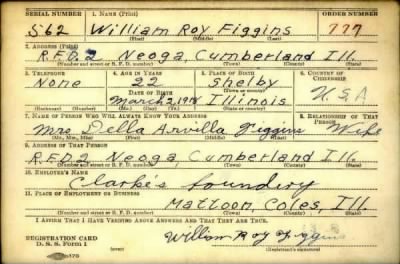 SERIAL NUMBER 1. NAME (Print) ORDER NUMBER
562 William Roy Figgins 777
(First) (Middle) (Last)
2. ADDRESS (Print)
R.F.D.2 Neoga, Cumberland Ill.
(Number and street or R. F. D. number) (Town) (County) (State)
3. TELEPHONE 4. AGE IN YEARS 5. PLACE OF BIRTH 6. COUNTRY OF CITIZENSHIP
None 22 Shelby
DATE OF BIRTH (Town or county)
March 2, 1918 Illinois U.S.A
(Mo.) (Day) (Yr.) (State or country)
7. NAME OF PERSON WHO WILL ALWAYS KNOW YOUR ADDRESS 8. RELATIONSHIP OF THAT PERSON
Mrs Della Arvilla Figgins Wife
(Mr., Mrs., Miss) (First) (Middle) (Last)
9. ADDRESS OF THAT PERSON
R.F.D.2 Neoga Cumberland Ill.
(Number and street or R. F. D. number) (Town) (County) (State)
10. EMPLOYER'S NAME
Clarke's Foundry
11. PLACE OF EMPLOYMENT OR BUSINESS
Mattoon, Coles, Ill.
(Number and street or R. F. D. number) (Town) (County) (State)
I AFFIRM THAT I HAVE VERIFIED ABOVE ANSWERS AND THAT THEY ARE TRUE.
REGISTRATION CARD William Roy Figgins
D. S. S. Form 1 (Registrant's signature)